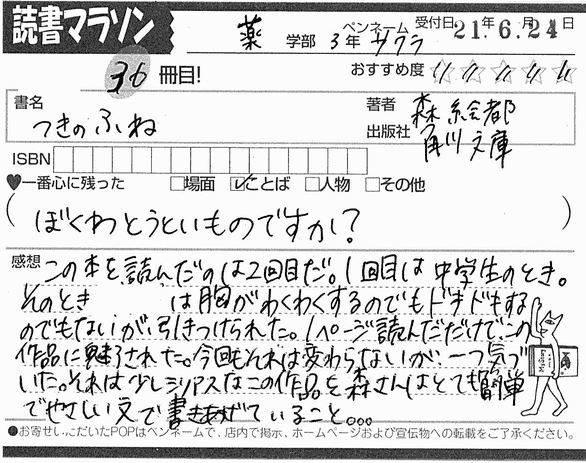 読書マラソン
薬 学部 3年 ペンネーム サクラ 受付日 21年6月24日
36冊目! おすすめ度 ☆☆☆☆☆
書名 つきのふね
著者 森絵都
出版社 角川文庫
ISBN
♥一番心に残った □場面 ☑ことば □人物 □その他
(ぼくわとうといものですか?)
感想 この本を読んだのは2回目だ。1回目は中学生のとき。
そのとき は胸がわくわくするのでもドキドキする
のでもないが、引きつけられた。1ページ読んだだけでこの
作品に魅了された。今回もそれは変わらないが、一つ気づ
いた。それは少しシリアスなこの作品を森さんはとても簡単
でやさしい文で書きあげていること…
●お寄せいただいたPOPはペンネームで、店内で掲示、ホームページおよび宣伝物への転載をご了承ください。